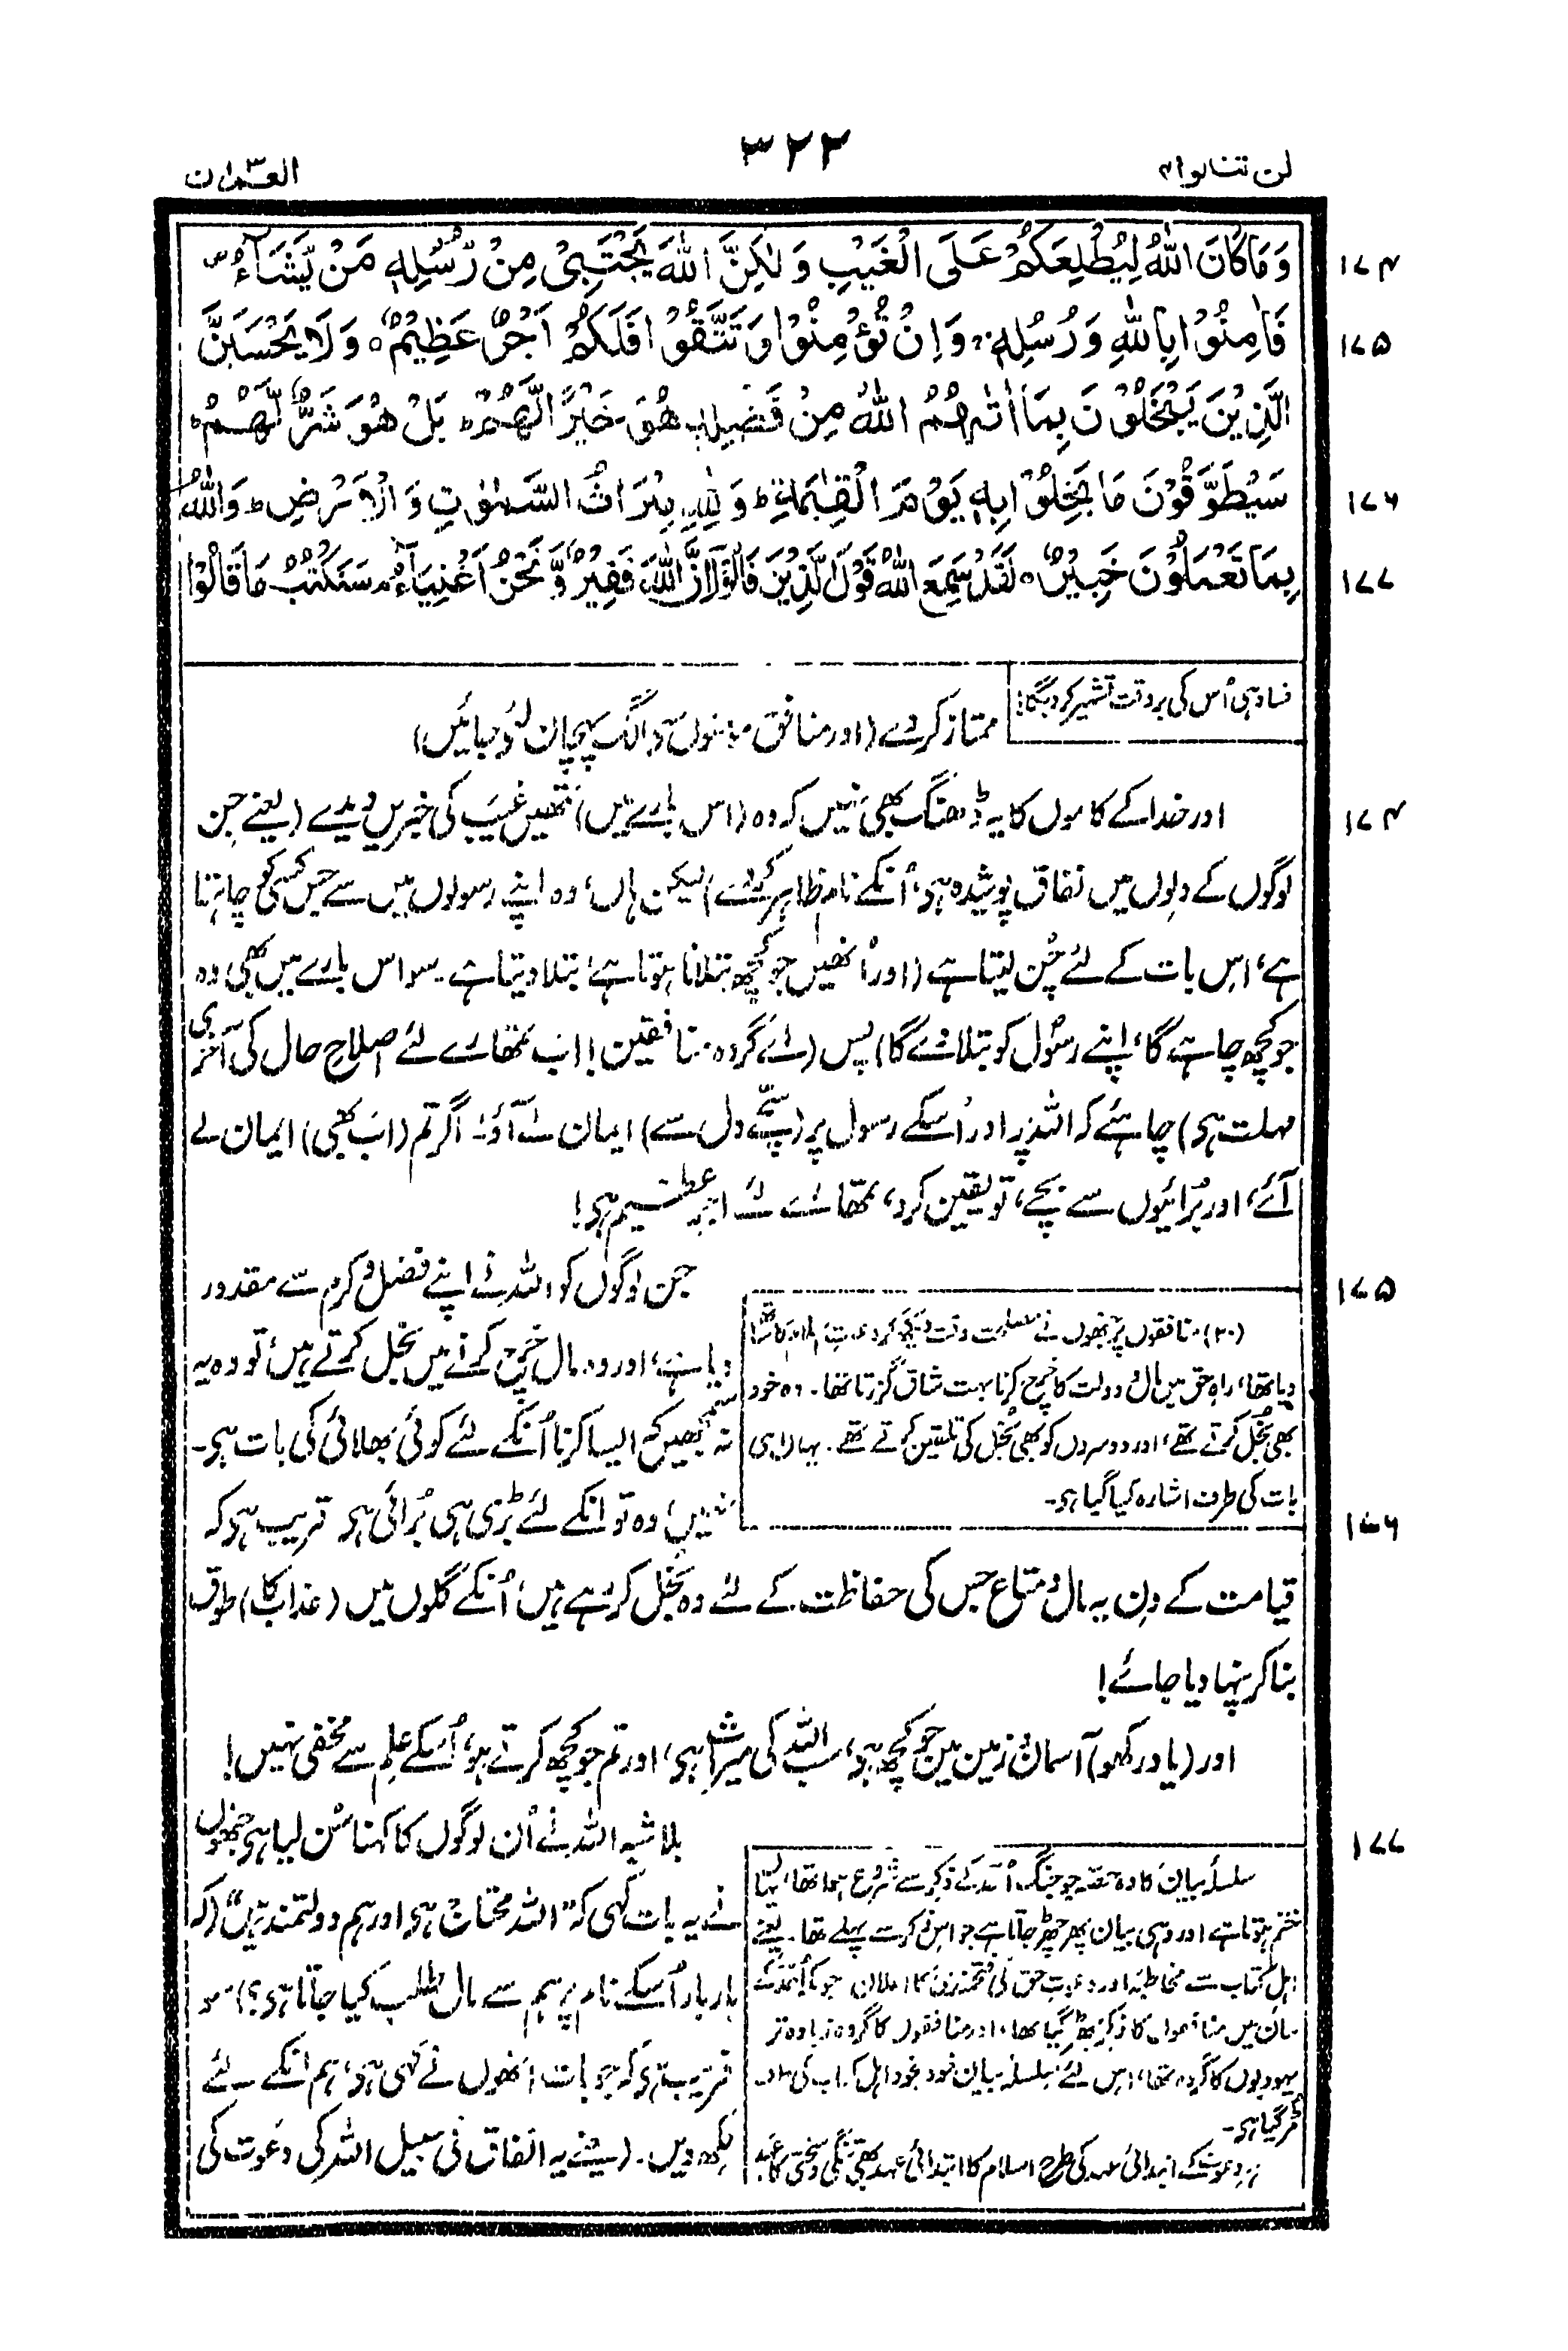 ۳۲۲
لن تنالوا ۴
اٰل عمران ۳
وَمَا كَانَ اللّٰهُ لِيُطْلِعَكُمْ عَلَى الْغَيْبِ وَ لٰكِنَّ اللّٰهَ يَجْتَبِىْ مِنْ رُّسُلِهٖ مَنْ يَّشَآءُ ۱۷۴
فَاٰمِنُوْا بِاللّٰهِ وَ رُسُلِهٖ وَ اِنْ تُؤْمِنُوْا وَ تَتَّقُوْا فَلَكُمْ اَجْرٌ عَظِيْمٌ ○ وَ لَا يَحْسَبَنَّ ۱۷۵
الَّذِيْنَ يَبْخَلُوْنَ بِمَا اٰتٰهُمُ اللّٰهُ مِنْ فَضْلِهٖ هُوَ خَيْرًا لَّهُمْ ؕ بَلْ هُوَ شَرٌّ لَّهُمْ ؕ
سَيُطَوَّقُوْنَ مَا بَخِلُوْا بِهٖ يَوْمَ الْقِيٰمَةِ ؕ وَ لِلّٰهِ مِيْرَاثُ السَّمٰوٰتِ وَ الْاَرْضِ ؕ وَ اللّٰهُ ۱۷۶
بِمَا تَعْمَلُوْنَ خَبِيْرٌ ○ لَقَدْ سَمِعَ اللّٰهُ قَوْلَ الَّذِيْنَ قَالُوْٓا اِنَّ اللّٰهَ فَقِيْرٌ وَّ نَحْنُ اَغْنِيَآءُ ۘ سَنَكْتُبُ مَا قَالُوْا ۱۷۷
فساد ہی اُس کی بر وقت تشہیر کر دیگا:
ممتاز کر دے (اور منافق مومنوں سے الگ پہچان لئے جائیں)
اور خدا کے کاموں کا یہ ڈھنگ بھی نہیں کہ وہ (اس بارے میں) تمھیں غیب کی خبریں دیدے (یعنے جن ۱۷۴
لوگوں کے دلوں میں نفاق پوشیدہ ہی، اُنکے نام ظاہر کردے) لیکن ہاں، وہ اپنے رسولوں میں سے جس کسی کو چاہتا
ہے، اِس بات کے لئے چُن لیتا ہے (اور اُنھیں جو کچھ بتلانا ہوتا ہے، بتلا دیتا ہے۔ سو اس بارے میں بھی وہ
جو کچھ چاہے گا، اپنے رسُول کو بتلا دے گا) پس (اے گروہ منافقین! اب تمھارے لئے اصلاحِ حال کی آخری
مہلت ہی) چاہئے کہ اللہ پر اور اُسکے رسول پر (سچّے دل سے) ایمان لے آؤ۔ اگر تم (اب بھی) ایمان لے
آئے، اور بُرائیوں سے بچے، تو یقین کرو، تمھارے لئے اجرِ عظیم ہی!
جن لوگوں کو اللہ نے اپنے فضل و کرم سے مقدور ۱۷۵
دیا ہے، اور وہ مال خرچ کرنے میں بخل کرتے ہیں، تو وہ یہ
نہ سمجھیں کہ ایسا کرنا اُنکے لئے کوئی بھلائی کی بات ہی۔
نہیں، وہ تو انکے لئے بڑی ہی بُرائی ہی قریب ہی کہ ۱۷۶
(۲۰) منافقوں پر جنھوں نے وقت دیکھ کر
دیا تھا، راہِ حق میں مال و دولت کا خرچ کرنا بہت شاق گزرتا تھا۔ وہ خود
بھی بُخل کرتے تھے، اور دوسروں کو بھی بُخل کی تلقین کرتے تھے۔ یہاں اسی
بات کی طرف اشارہ کیا گیا ہی۔
قیامت کے دن یہ مال و متاع جس کی حفاظت کے لئے وہ بخل کر رہے ہیں، اُنکے گلوں میں (عذاب کا) طوق
بنا کر پہنا دیا جائے!
اور (یاد رکھو) آسمان و زمین میں جو کچھ ہی، سب اللہ کی میراث ہی، اور تم جو کچھ کرتے ہو، اُسکے علم سے مخفی نہیں!
بلا شبہ اللہ نے اُن لوگوں کا کہنا سُن لیا ہی جنھوں ۱۷۷
نے یہ بات کہی کہ "اللہ محتاج ہی اور ہم دولتمند ہیں" (کہ
بار بار اُسکے نام پر ہم سے مال طلب کیا جاتا ہی؟) سو
قریب ہی کہ جو بات اُنھوں نے کہی ہی، ہم انکے لئے
لکھ دیں۔ (یعنے یہ انفاق فی سبیل اللہ کی دعوت کی
سلسلۂ بیان کا وہ حصّہ جو جنگِ اُحد کے ذکر سے شروع ہوا تھا، یہاں
ختم ہوتا ہے اور وہی بیان پھر چھڑ جاتا ہے جو اس ذکر سے پہلے تھا۔ یعنے
اہلِ کتاب سے مخاطبہ اور دعوتِ حق کی فتحمندیوں کا اعلان جو
میں منافقوں کا ذکر چھڑ گیا تھا، اور منافقوں کا گروہ زیادہ تر
یہودیوں کا گروہ تھا، اِس لئے سلسلۂ بیان خود بخود اہلِ کتاب کی طرف
مڑ گیا ہی۔
ہر دعوت کے ابتدائی عہد کی طرح اسلام کا ابتدائی عہد بھی تنگی و سختی کا عہد